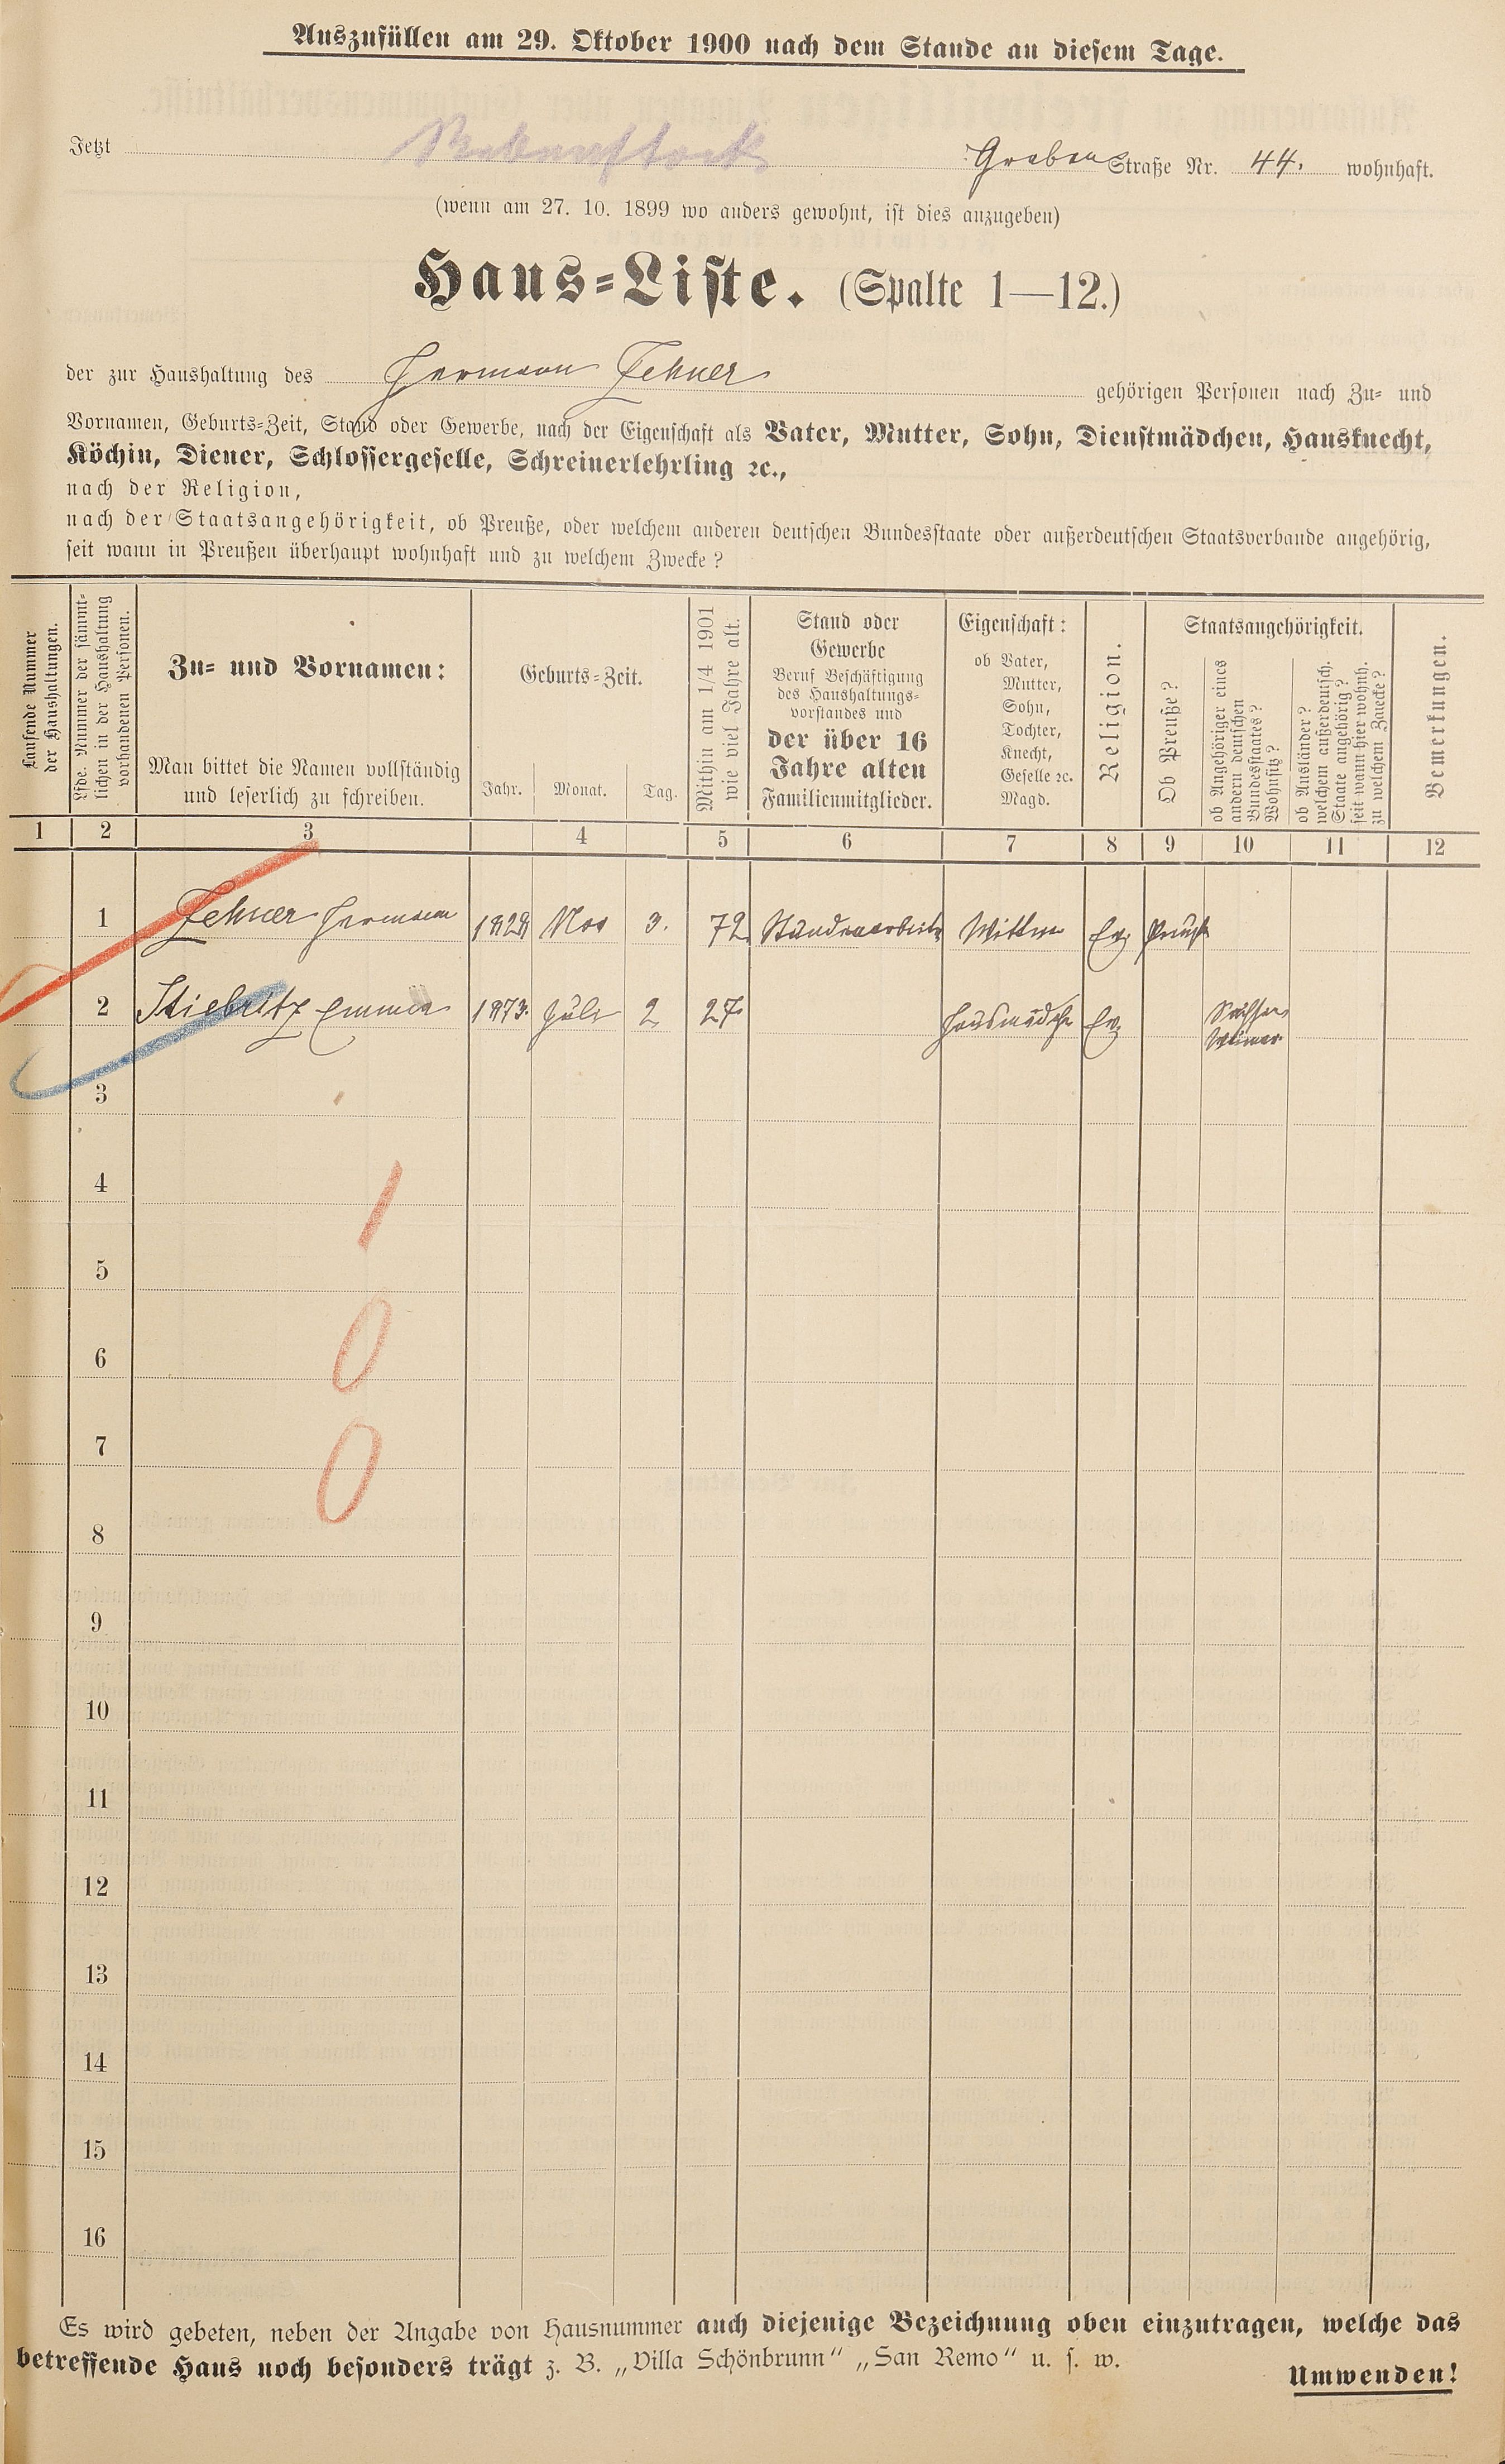 Auszufüllen am 29. Oktober 1900 nach dem Stande an diesem Tage.
Jetzt Rebenstock Graben Straße Nr. 44. wohnhaft.
(wenn am 27. 10. 1899 wo anders gewohnt, ist dies anzugeben)
Haus-Liste. (Spalte 1—12.)
der zur Haushaltung des Hermann gehörigen Personen nach Zu- und
Vornamen, Geburts-Zeit, Stand oder Gewerbe, nach der Eigenschaft als Vater, Mutter, Sohn, Dienstmädchen, Hausknecht,
Köchin, Diener, Schlossergeselle, Schreinerlehrling ꝛc.,
nach der Religion,
nach der Staatsangehörigkeit, ob Preuße, oder welchem anderen deutschen Bundesstaate oder außerdeutschen Staatsverbande angehörig,
seit wann in Preußen überhaupt wohnhaft und zu welchem Zwecke?
Laufende Nummer
der Haushaltungen.
Lfde. Nummer der sämmt-
lichen in der Haushaltung
vorhandenen Personen.
Zu- und Vornamen:
Man bittet die Namen vollständig
und leserlich zu schreiben.
Geburts-Zeit.
Jahr. Monat. Tag.
Mithin am 1/4 1901
wie viel Jahre alt.
Stand oder
Gewerbe
Beruf Beschäftigung
des Haushaltungs-
vorstandes und
der über 16
Jahre alten
Familienmitglieder.
Eigenschaft:
ob Vater,
Mutter,
Sohn,
Tochter,
Knecht,
Geselle ꝛc.
Magd.
Religion.
Staatsangehörigkeit.
Ob Preuße?
ob Angehöriger eines
andern deutschen
Bundesstaates?
Wohnsitz?
ob Ausländer?
welchem außerdeutsch.
Staate angehörig?
seit wann hier wohnh.
zu welchem Zwecke?
Bemerkungen.
1 2 3 4 5 6 7 8 9 10 11 12
1 Hermann 1828 Nov 3. 72 Wittwer Ev. Preuße
2 Stiebritz Emma 1873. Juli 2 27 Hausmädchen Ev. Sachsen
Weimar
3
4
1
5
6
0
7
0
8
9
10
11
12
13
14
15
16
Es wird gebeten, neben der Angabe von Hausnummer auch diejenige Bezeichnung oben einzutragen, welche das
betreffende Haus noch besonders trägt z. B. „Villa Schönbrunn“ „San Remo“ u. s. w.
Umwenden!